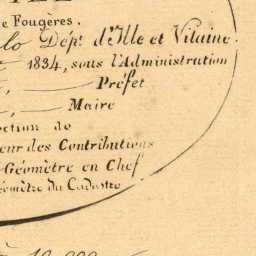 e Fougères.
lo Dépt. d'Ille et Vilaine.
1834, sous l'Administration
Préfet
Maire
ction de
eur des Contributions
Géomètre en Chef
éomètre du Cadastre